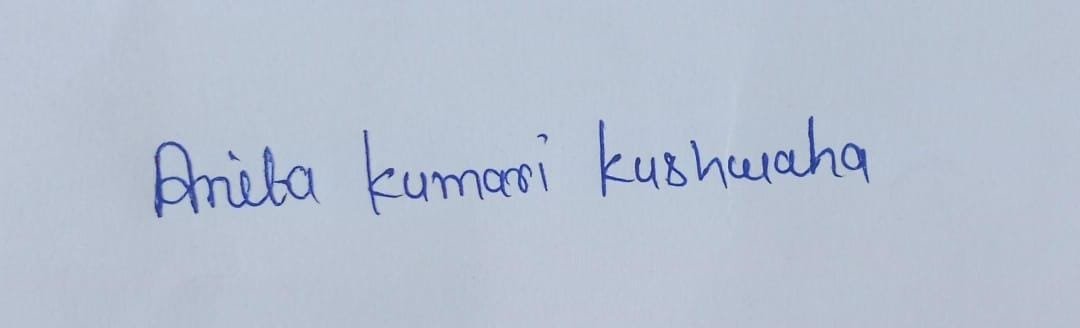 Anita kumari kushwaha